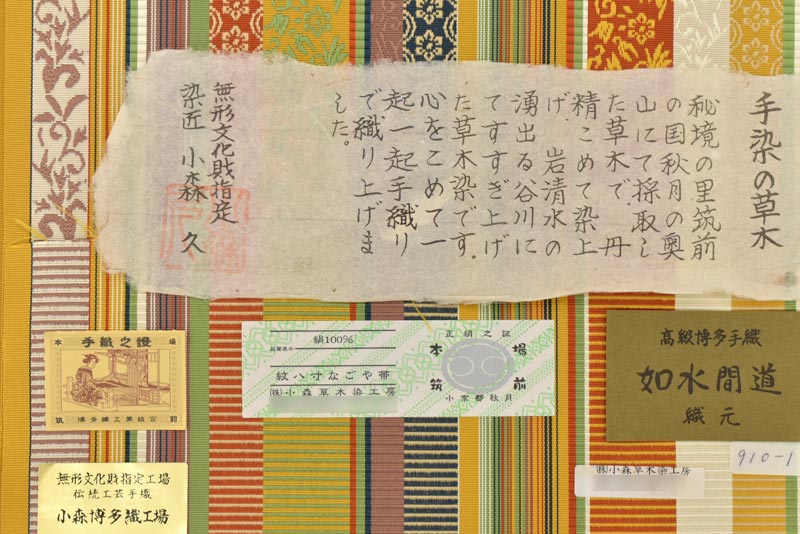 手染の草木
秘境の里筑前
の国秋月の奥
山にて採取し
た草木で、丹
精こめて染上
げ、岩清水の
湧出る谷川に
てすすぎ上げ
た草木染です。
心をこめて一
起一起手織り
で織り上げま
した。
無形文化財指定
染匠 小森 久
本 手織之證 場
筑 博多織工業組合 前
無形文化財指定工場
伝統工芸手織
小森博多織工場
絹100%
紋八寸なごや帯
(株)小森草木染工房
正絹之証
本 場
筑 前
小京都秋月
高級博多手織
如水間道
織元
(株)小森草木染工房
910-1